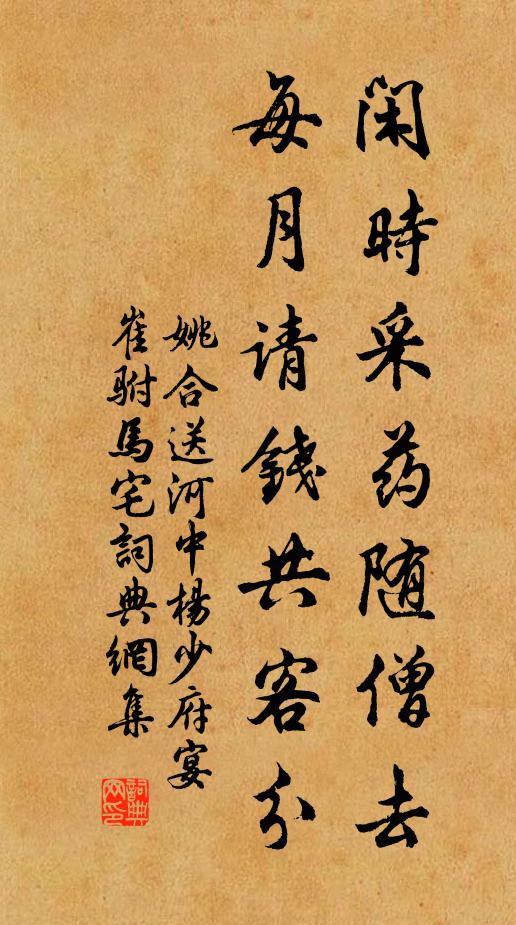 闲時采药随僧去
每月请錢共客分
姚合送河中楊少府宴
崔駙馬宅詞典網集
詞典
网印